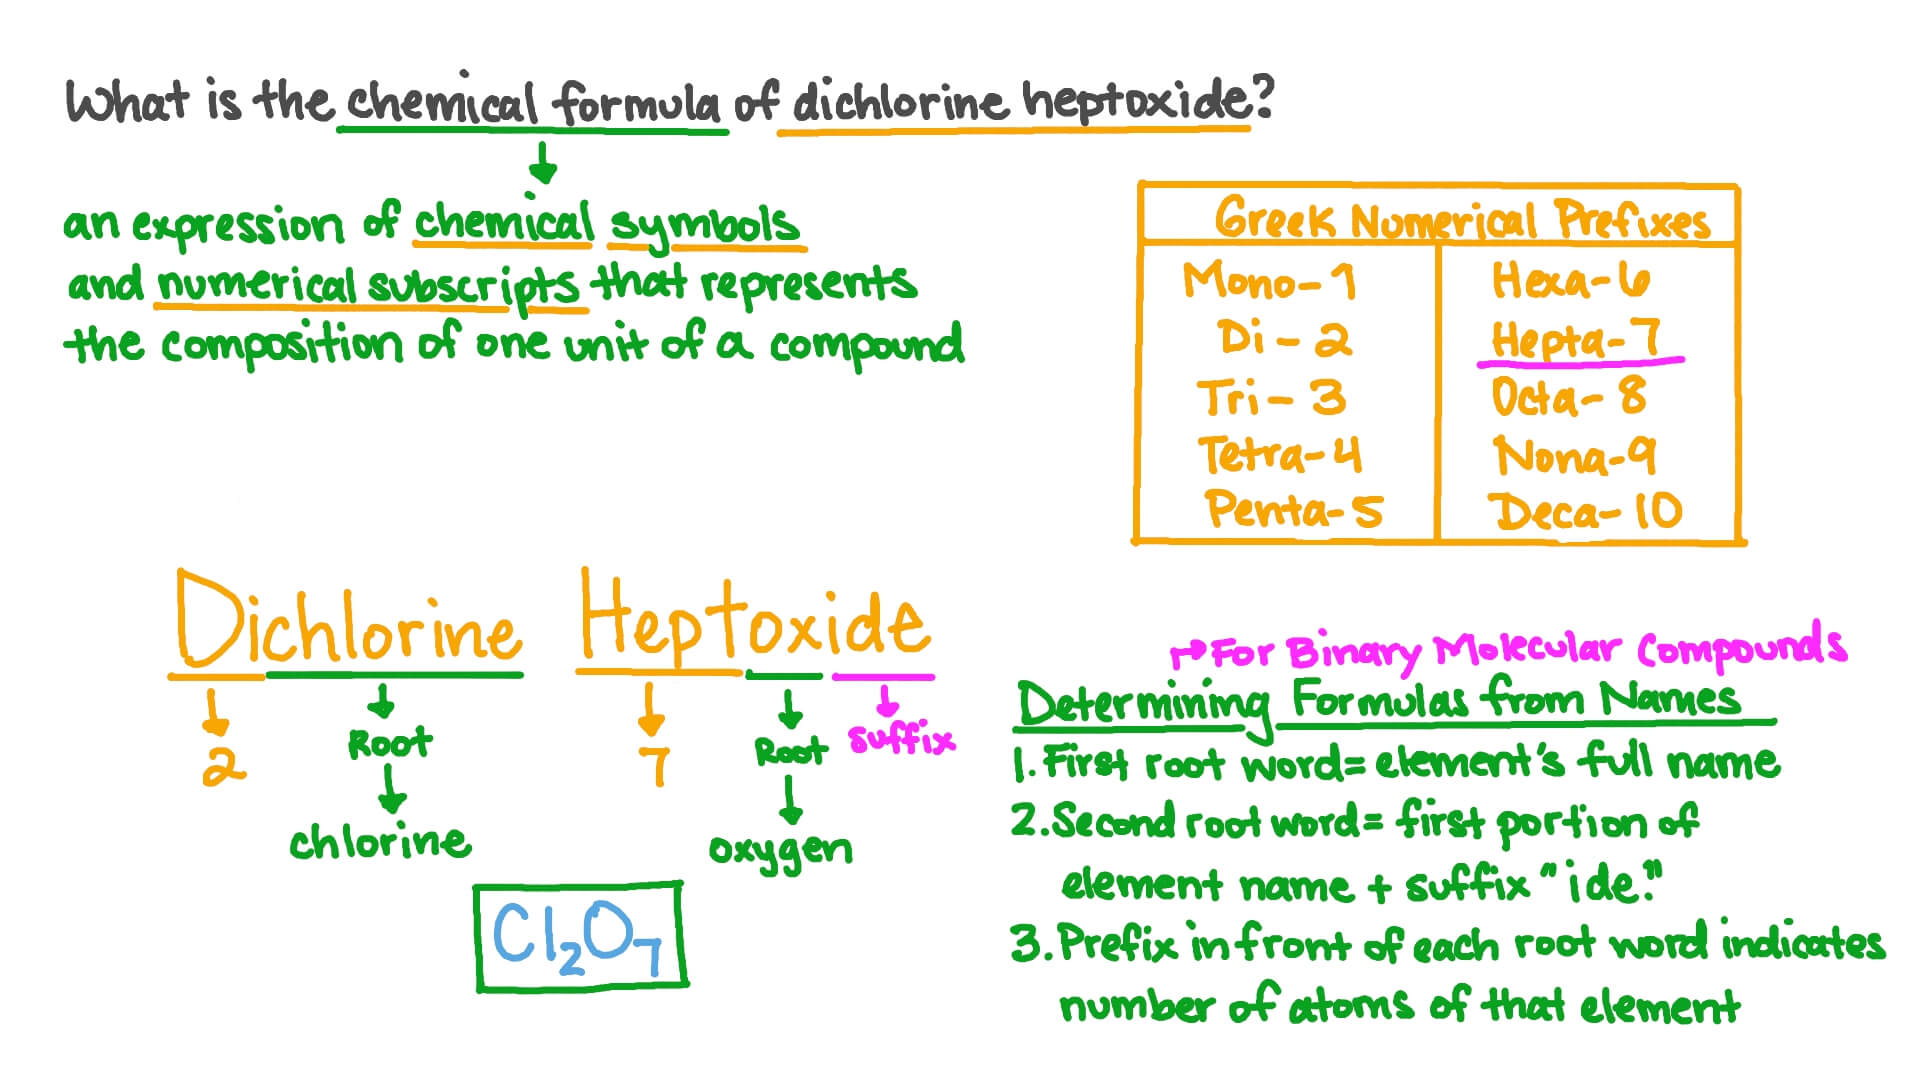 What is the chemical formula of dichlorine heptoxide?
an expression of chemical symbols
and numerical subscripts that represents
the composition of one unit of a compound
Greek Numerical Prefixes
Mono-1
Di-2
Tri-3
Tetra-4
Penta-5
Hexa-6
Hepta-7
Octa-8
Nona-9
Deca-10
Dichlorine Heptoxide
2
Root
chlorine
7
Root
oxygen
suffix
Cl₂O₇
→For Binary Molecular Compounds
Determining Formulas from Names
1. First root word= element's full name
2. Second root word= first portion of
element name + suffix "ide."
3. Prefix in front of each root word indicates
number of atoms of that element